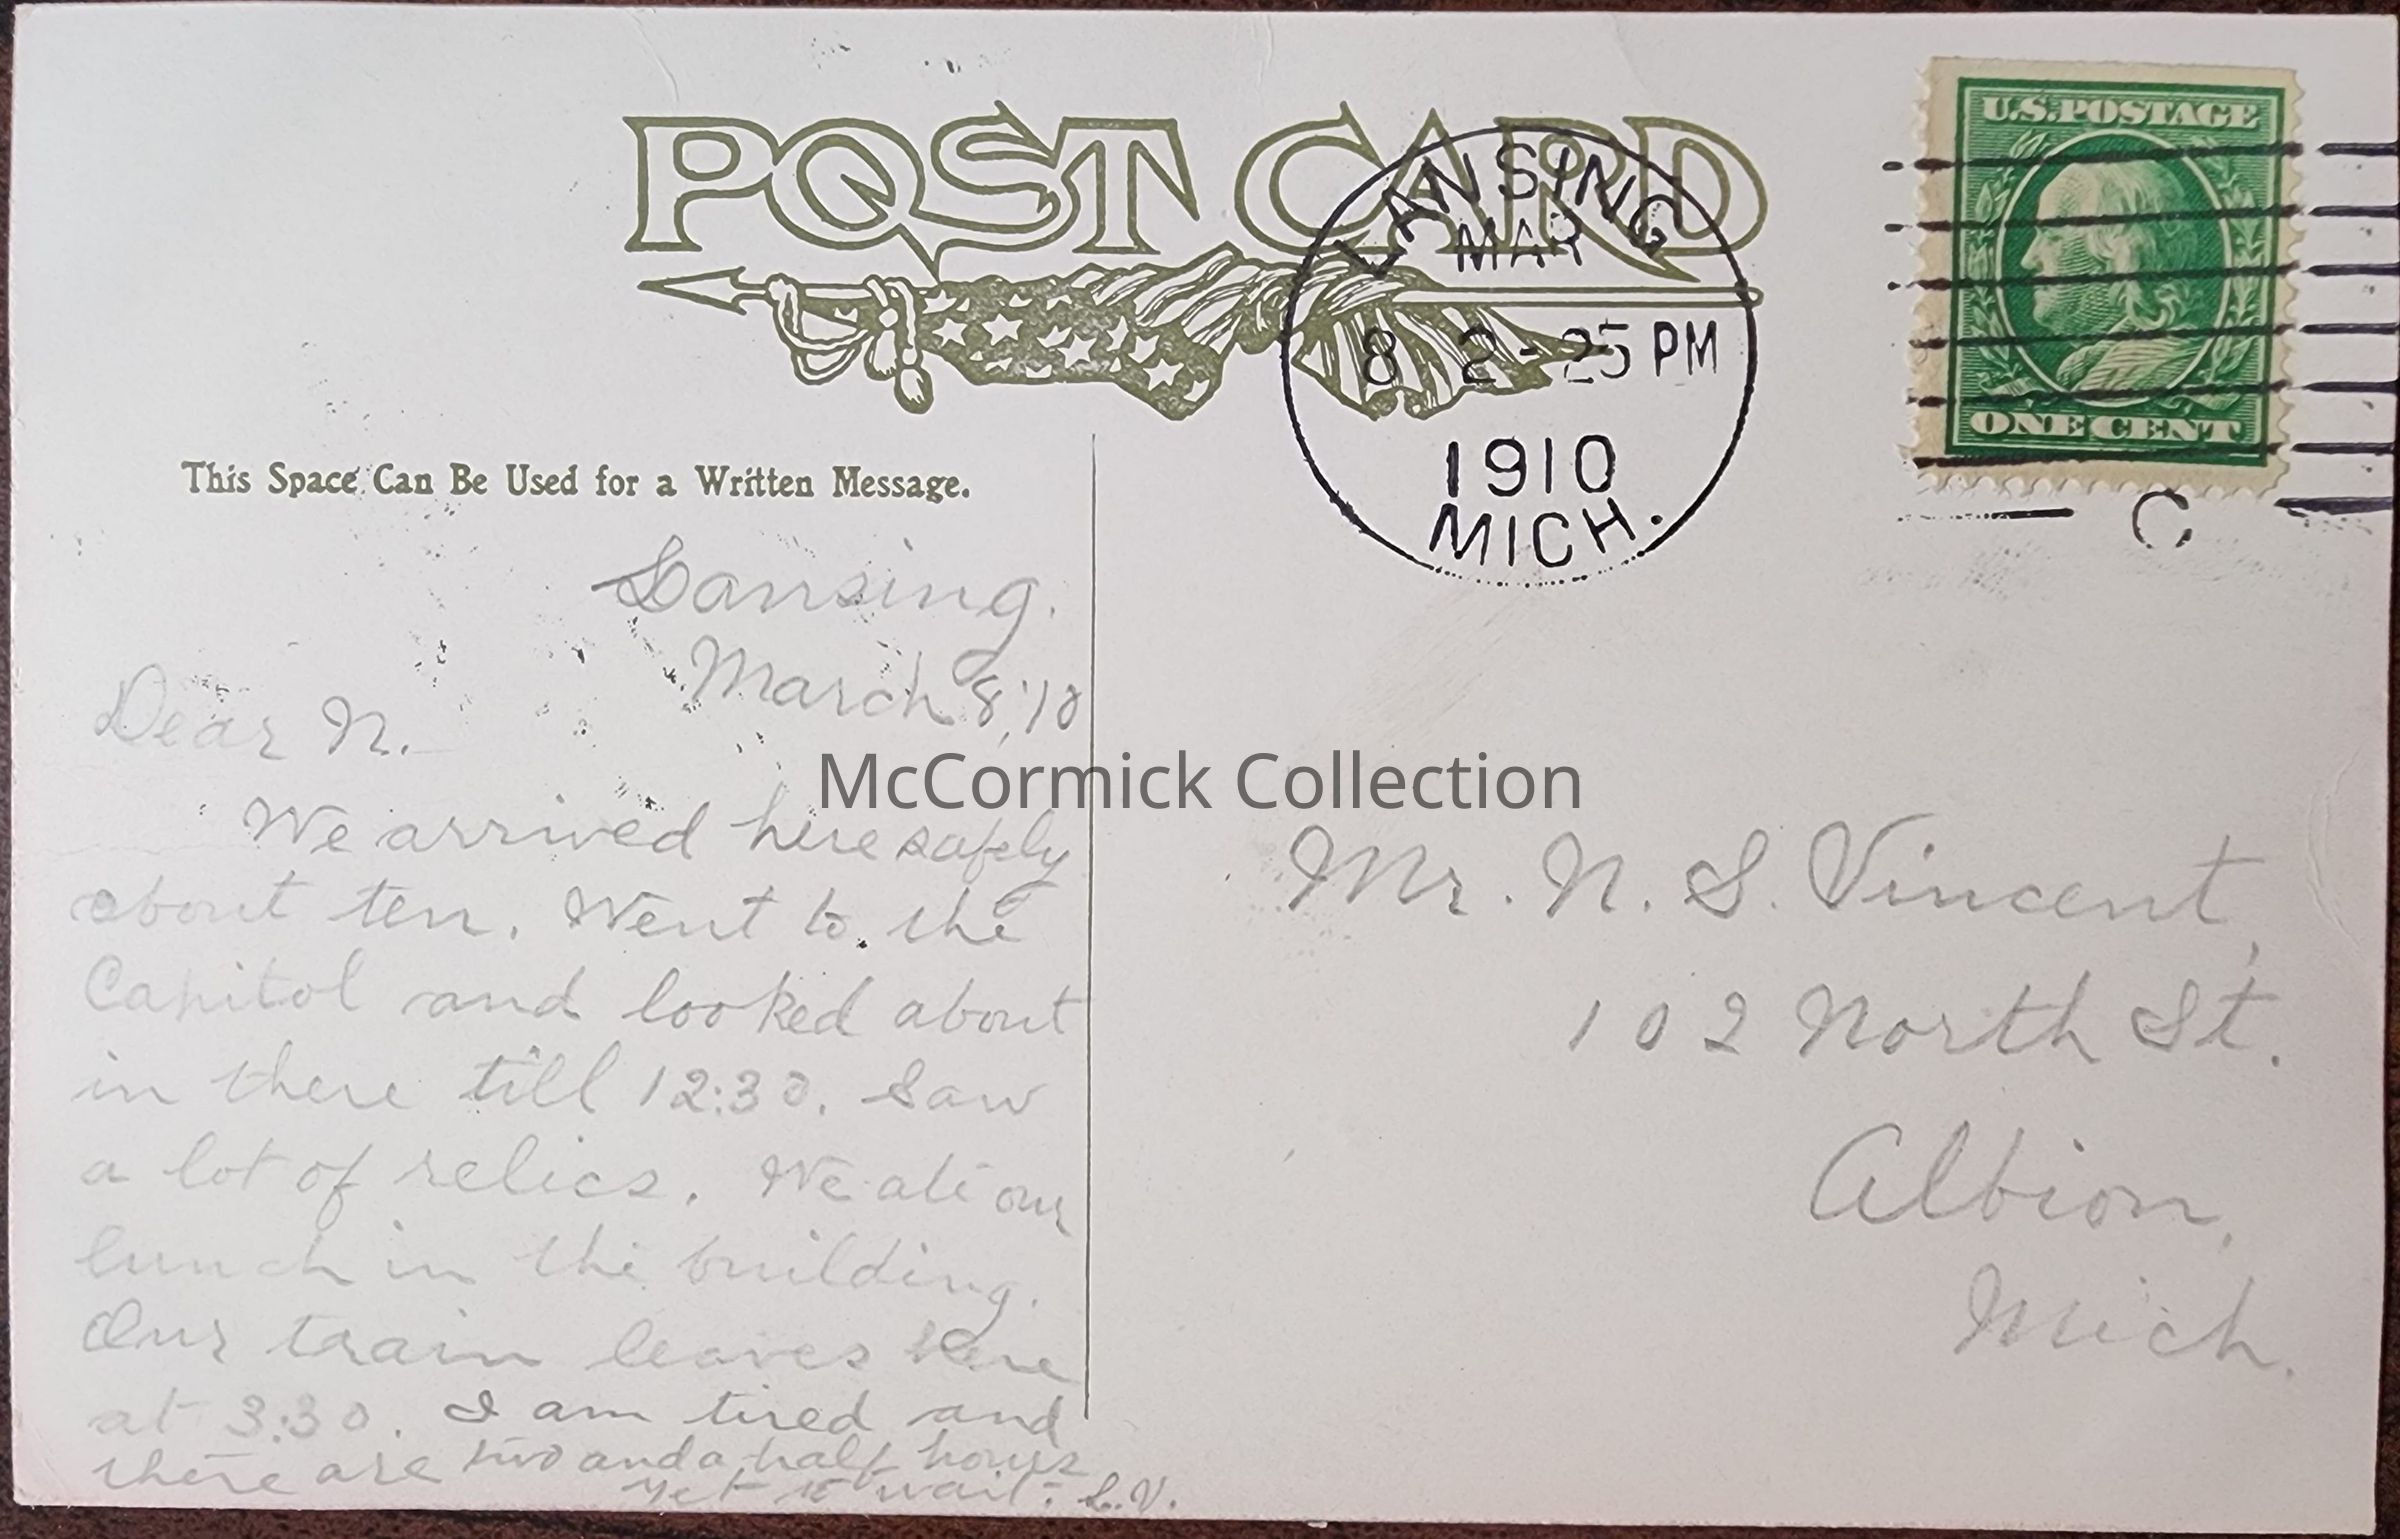 POST CARD
U.S. POSTAGE
ONE CENT
LANSING
MAR
8 2-25 PM
1910
MICH.
C
This Space Can Be Used for a Written Message.
Lansing.
March 8, '10
Dear N.
We arrived here safely
about ten. Went to the
Capitol and looked about
in there till 12:30. Saw
a lot of relics. We ate our
lunch in the building.
Our train leaves here
at 3:30. I am tired and
there are two and a half hours
yet to wait. L.V.
McCormick Collection
Mr. N. S. Vincent,
102 North St.
Albion,
Mich.